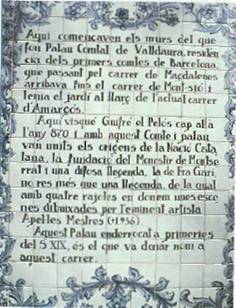 Aqui començaven els murs del que
fou Palau Comtal de Valldaura, residèn
cia dels primers comtes de Barcelona,
que passant pel carrer de Magdalenes
arribava fins el carrer de Mont-sió i
tenia el jardí al llarg de l'actual carrer
d'Amargós.
Aquí visqué Guifré el Pelós cap allà
l'any 870 i amb aquest Comte i palau
van units els orígens de la Nació Cata
lana, la fundació del Monestir de Montse
rrat i una difosa llegenda, la de Fra Garí,
no res més que una llegenda, de la qual
amb quatre rajoles en donem unes esce
nes dibuixades per l'eminent artista
Apel·les Mestres (+1936)
Aquest Palau enderrocat a primeries
del S XIX, és el que va donar nom a
aquest carrer.